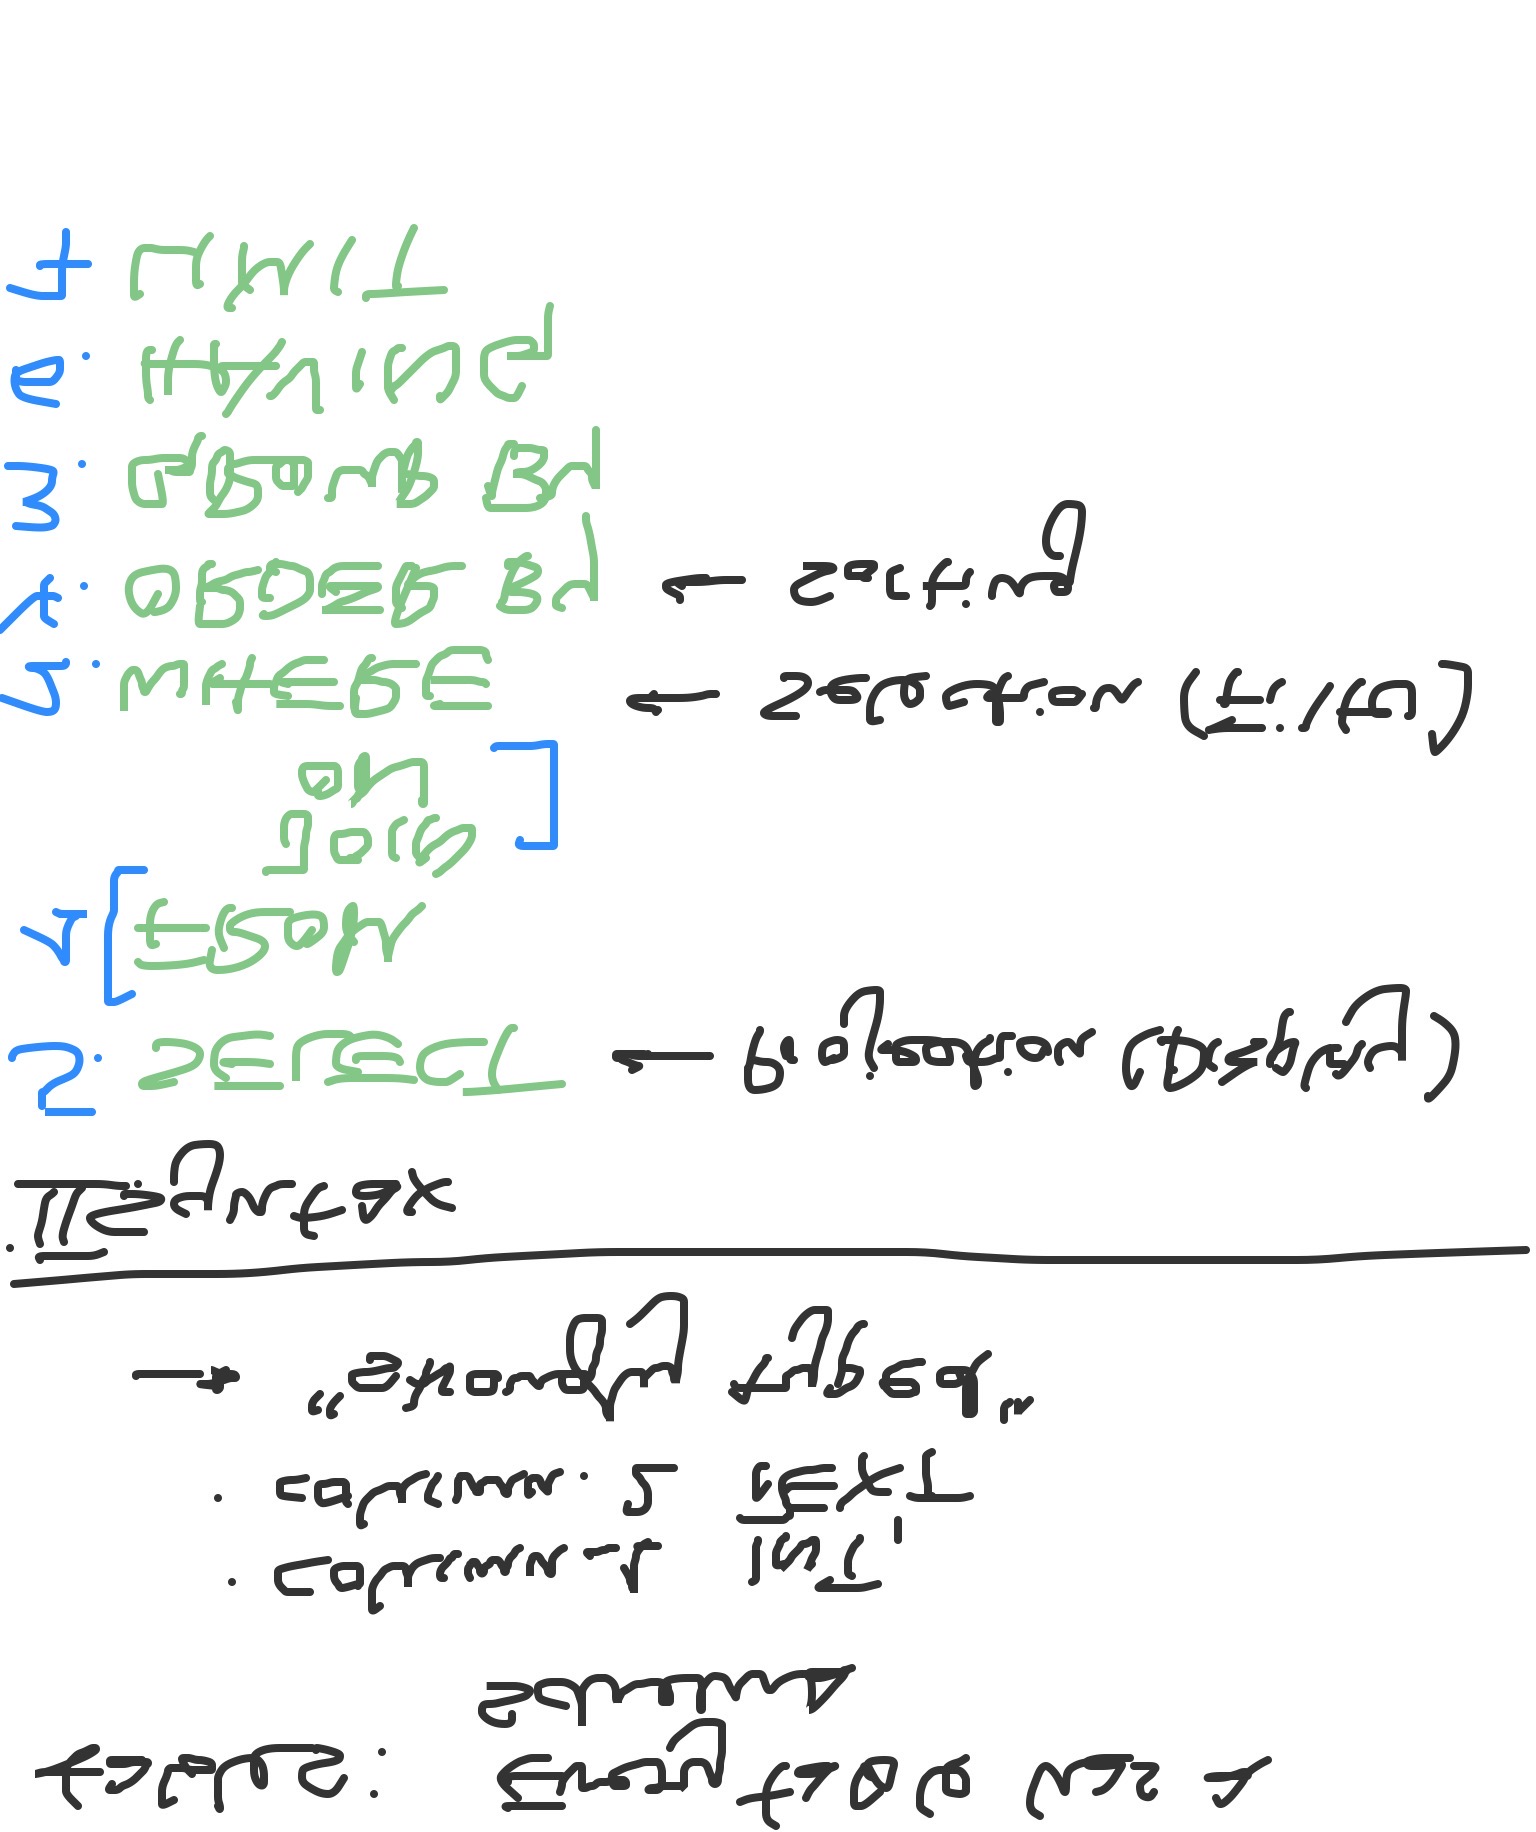 tables: Every table has a
Schema
· column_1 INT,
· column_2 TEXT
→ "strongly typed"
II. Syntax
5. SELECT ← Projection (Display)
1 [ FROM
JOIN
ON ]
2. WHERE ← Selection (Filter)
4. ORDER BY ← Sorting
3. GROUP BY
6. HAVING
7 LIMIT